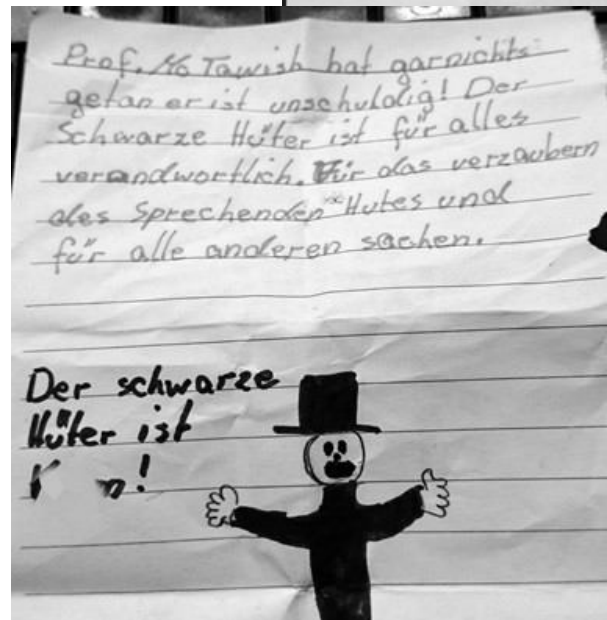 Prof. Mo Tawish hat garnichts
getan er ist unschuldig! Der
Schwarze Hüter ist für alles
verandwortlich. Für das verzaubern
des Sprechenden Hutes und
für alle anderen sachen.
Der schwarze
Hüter ist